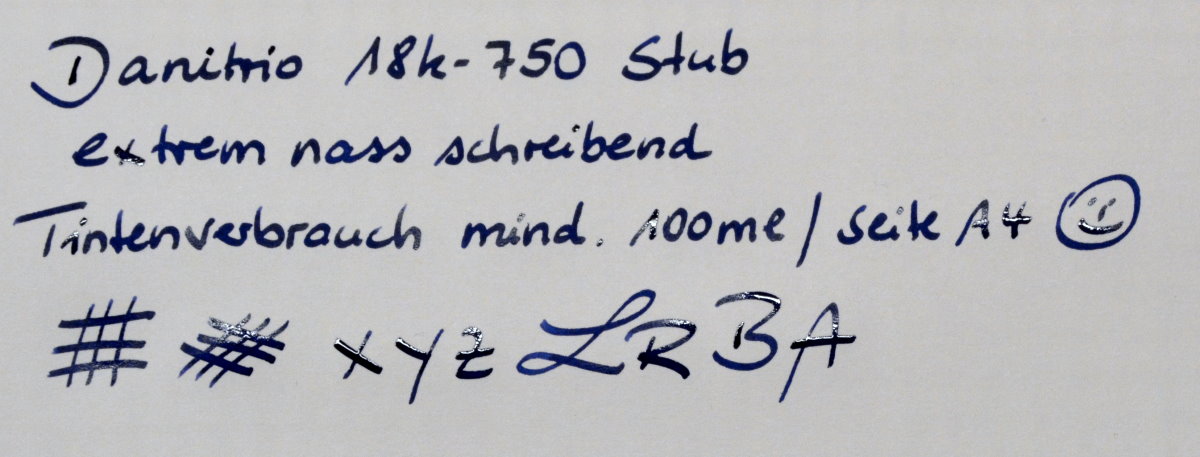 Danitrio 18k-750 Stub
extrem nass schreibend
Tintenverbrauch mind. 100ml/Seite A4
xyz L R B A